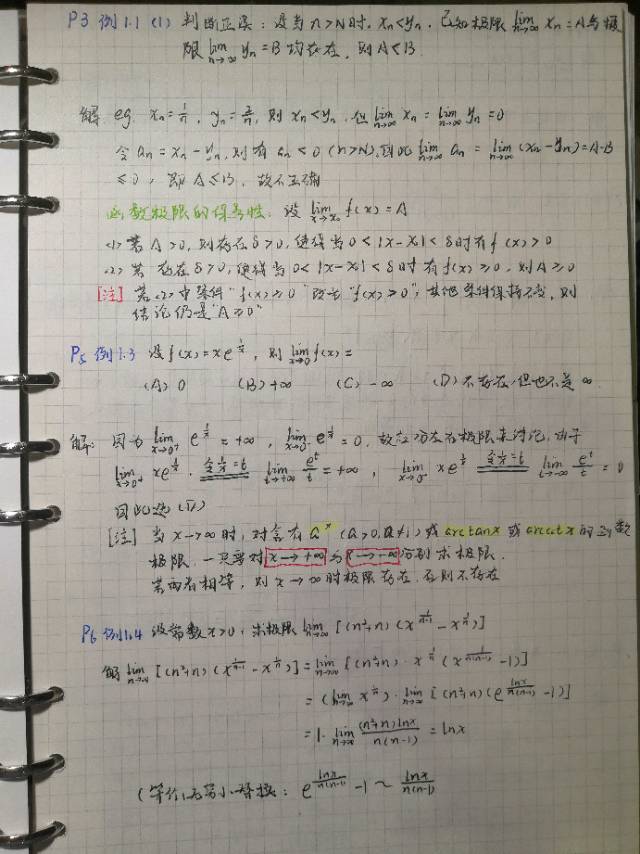 P3 例1.1 (1) 判断正误: 设当 n>N时, xₙ<yₙ. 已知极限 lim_{n→∞} xₙ=A与极
限 lim_{n→∞} yₙ=B 均存在, 则 A<B.
解 eg. xₙ=1/n, yₙ=2/n, 则 xₙ<yₙ, 但 lim_{n→∞} xₙ = lim_{n→∞} yₙ=0
令 aₙ=xₙ-yₙ, 则有 aₙ<0 (n>N), 因此 lim_{n→∞} aₙ = lim_{n→∞} (xₙ-yₙ)=A-B
≤0, 即 A≤B, 故不正确
函数极限的保号性: 设 lim_{x→x₀} f(x)=A
(1) 若 A>0, 则存在 δ>0, 使得当 0<|x-x₀|<δ时有 f(x)>0
(2) 若 存在 δ>0, 使得当 0<|x-x₀|<δ时 有 f(x)≥0, 则 A≥0
[注] 若(2)中条件“f(x)≥0”改为“f(x)>0”, 其他条件保持不变, 则
结论仍是“A≥0”
P5 例1.3 设 f(x)=xe^{1/x}, 则 lim_{x→0} f(x)=
(A) 0 (B) +∞ (C) -∞ (D) 不存在,但也不是 ∞
解: 因为 lim_{x→0⁺} e^{1/x}=+∞, lim_{x→0⁻} e^{1/x}=0, 故应分左右极限来讨论, 由于
lim_{x→0⁺} xe^{1/x} 令1/x=t lim_{t→+∞} e^t/t=+∞, lim_{x→0⁻} xe^{1/x} 令1/x=t lim_{t→-∞} e^t/t=0
因此选(D)
[注] 当 x→∞ 时, 对含有 a^x (a>0, a≠1) 或 arctanx 或 arccotx 的函数
极限, 一定要对 x→+∞ 与 x→-∞ 分别求极限.
若两者相等, 则 x→∞ 时极限存在, 否则不存在
P6 例1.4 设常数 x>0, 求极限 lim_{n→∞} [(n²+n)(x^{1/(n-1)}-x^{1/n})]
解 lim_{n→∞} [(n²+n)(x^{1/(n-1)}-x^{1/n})] = lim_{n→∞} [(n²+n)·x^{1/n}(x^{1/(n(n-1))}-1)]
= (lim_{n→∞} x^{1/n})·lim_{n→∞} [(n²+n)(e^{lnx/(n(n-1))}-1)]
= 1·lim_{n→∞} (n²+n)lnx/(n(n-1)) = lnx
(等价无穷小替换: e^{lnx/(n(n-1))}-1 ~ lnx/(n(n-1))